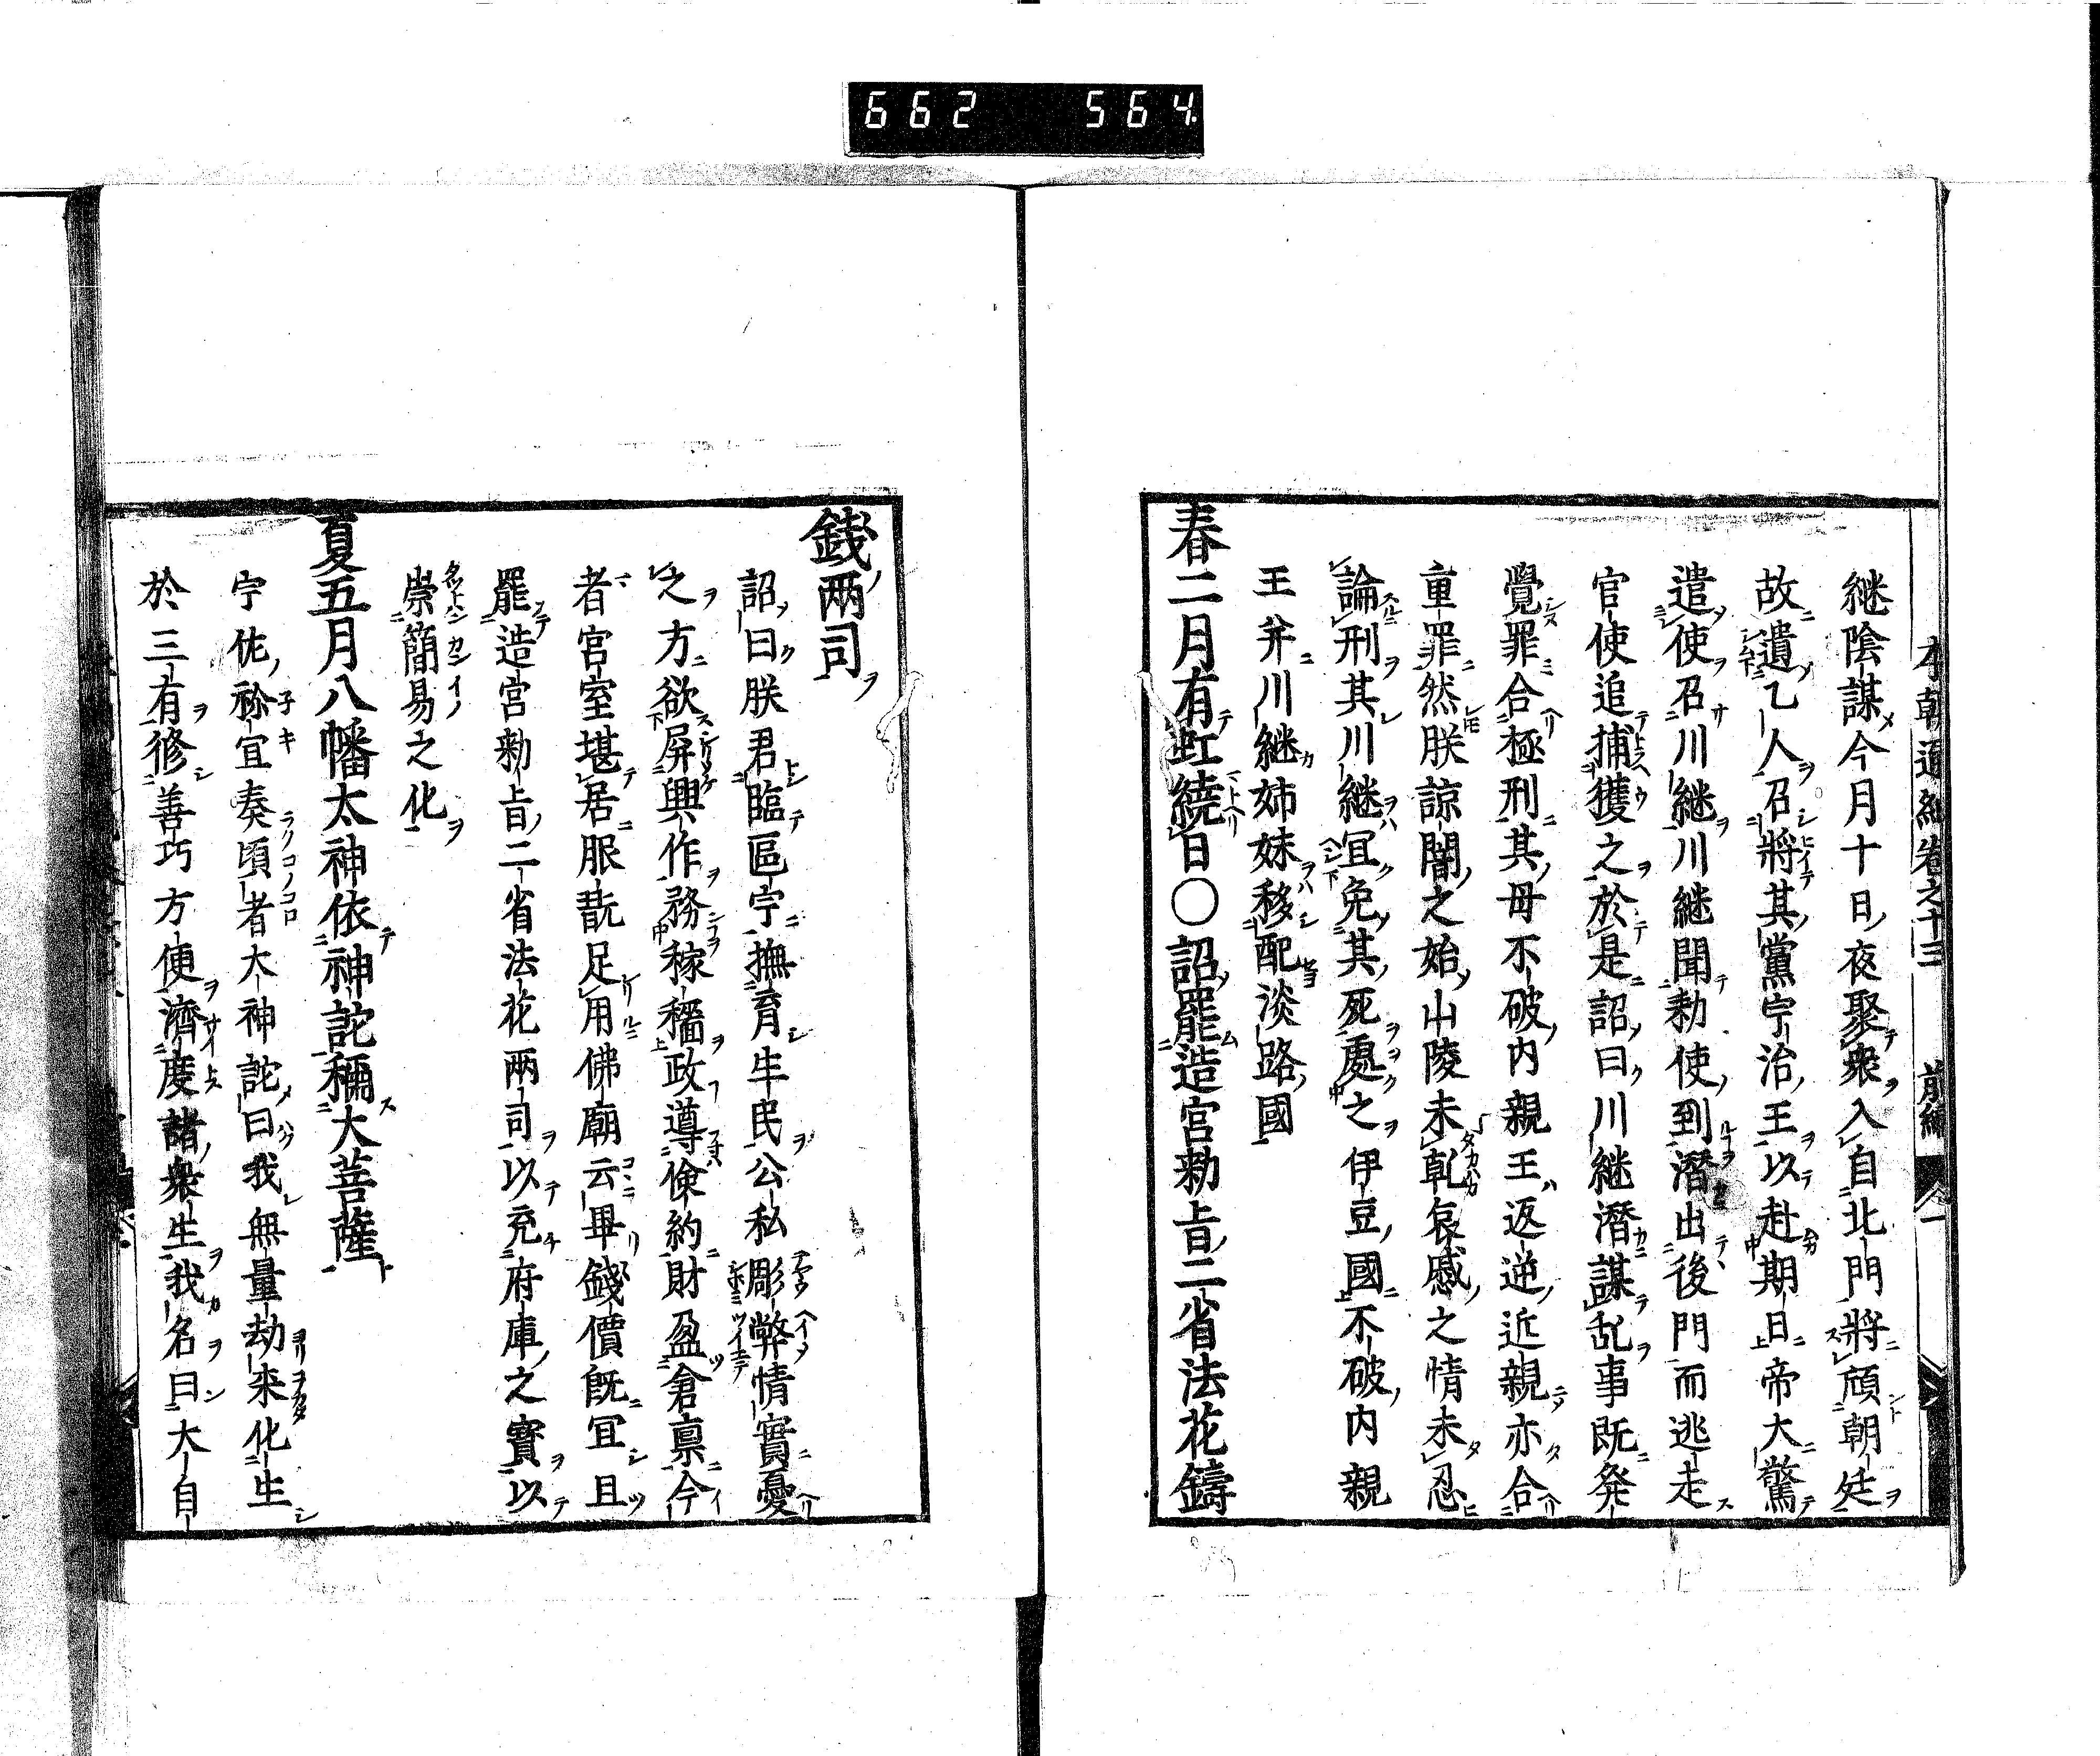 662 564
本朝通紀卷之十三 前編
継陰謀今月十日夜聚衆入自北門將頎朝廷
故遺乙人召將其黨宁治王以赴期日帝大驚
遣使召川継川継聞勅使到潛出後門而逃走
官使追捕獲之於是詔曰川継潛謀乱事既発
覺罪合極刑其母不破内親王返逆近親亦合
重罪然朕諒闇之始山陵未乹哀慼之情未忍
論刑其川継冝免其死處之伊豆國不破内親
王并川継姉妹移配淡路國
春二月有虹繞日〇詔罷造宮勅旨二省法花鑄
錢兩司
詔曰朕君臨區宁撫育生民公私彫弊情實憂
之方欲屏興作務稼穡政遵倹約財盈倉禀今
者宮室堪居服翫足用佛廟云畢錢價既冝且
罷造宮勅旨二省法花兩司以充府庫之寳以
崇簡易之化
夏五月八幡太神依神詫稱大菩薩
宁佐祢宜奏頃者大神詫曰我無量劫来化生
於三有修善巧方便濟度諸衆生我名曰大自